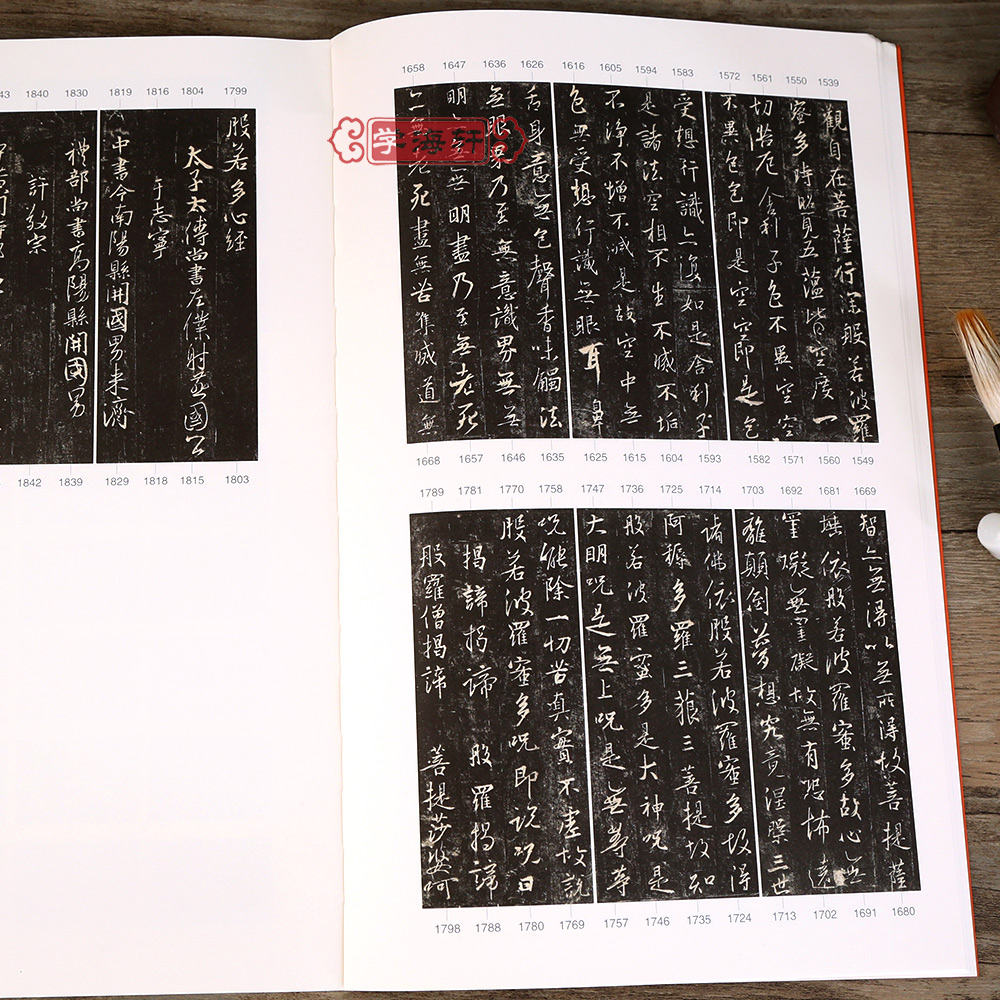 1658 1647 1636 1626 1616 1605 1594 1583 1572 1561 1550 1539
觀自在菩薩行深般若波羅
蜜多時照見五蘊皆空度一
切苦厄舍利子色不異空空
不異色色即是空空即是色
受想行識亦復如是舍利子
是諸法空相不生不滅不垢
不淨不增不減是故空中無
色無受想行識無眼耳鼻
舌身意無色聲香味觸法
無眼界乃至無意識界無無
明亦無無明盡乃至無老死
亦無老死盡無苦集滅道無
学海轩
1668 1657 1646 1635 1625 1615 1604 1593 1582 1571 1560 1549
1789 1781 1770 1758 1747 1736 1725 1714 1703 1692 1681 1669
智亦無得以無所得故菩提薩
埵依般若波羅蜜多故心無
罣礙無罣礙故無有恐怖遠
離顛倒夢想究竟涅槃三世
諸佛依般若波羅蜜多故得
阿耨多羅三藐三菩提故知
般若波羅蜜多是大神咒是
大明咒是無上咒是無等等
咒能除一切苦真實不虛故說
般若波羅蜜多咒即說咒曰
揭諦揭諦 般羅揭諦
般羅僧揭諦 菩提莎婆呵
1798 1788 1780 1769 1757 1746 1735 1724 1713 1702 1691 1680
1840 1830 1819 1816 1804 1799
般若多心經
太子太傅尚書左僕射燕國公
于志寧
中書令南陽縣開國男來濟
禮部尚書高陽縣開國男
許敬宗
1842 1839 1829 1818 1815 1803